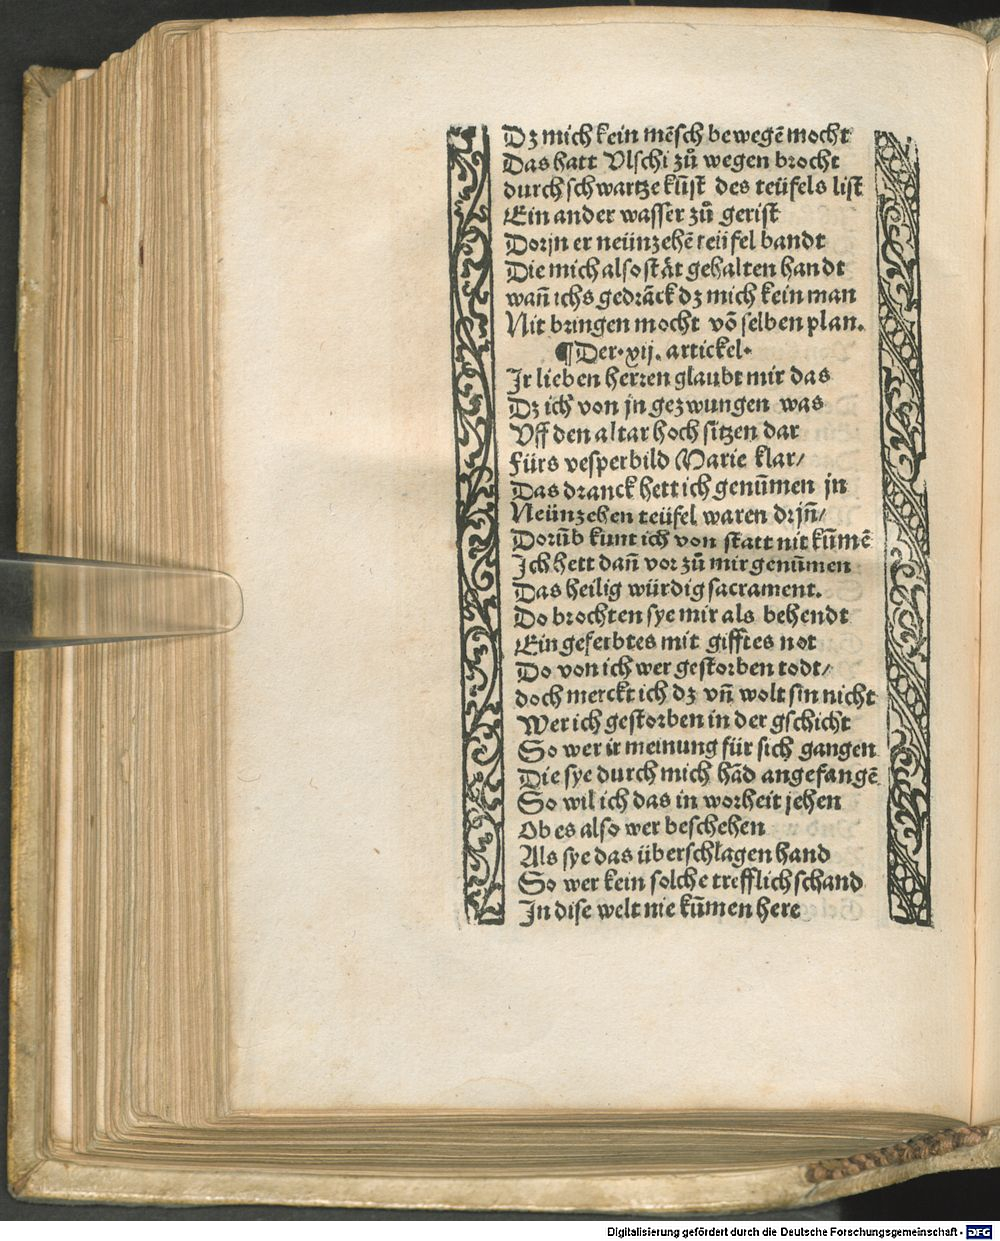 Dz mich kein mēsch bewegē mocht
Das hatt Vlschi zů wegen brocht
durch schwartze kūst des teüfels list
Ein ander wasser zů gerist
Dorjn er neünzehē teüfel bandt
Die mich also stāt gehalten handt
wañ ichs gedrāck dz mich kein man
Nit bringen mocht vō selben plan.
¶Der.xij.artickel.
Jr lieben herren glaubt mir das
Dz ich von jn gezwungen was
Vff den altar hoch sitzen dar
Fürs vesperbild Marie klar/
Das dranck hett ich genūmen jn
Neünzehen teüfel waren drjñ/
Dorūb kunt ich von statt nit kūmē
Jch hett dañ vor zū mir genūmen
Das heilig würdig sacrament.
Do brochten sye mir als behendt
Ein geferbtes mit gifftes not
Do von ich wer gestorben todt/
doch merckt ich dz vñ wolt sin nicht
Wer ich gestorben in der gschicht
So wer ir meinung für sich gangen
Die sye durch mich hād angefangē
So wil ich das in worheit jehen
Ob es also wer beschehen
Als sye das überschlagen hand
So wer kein solche trefflich schand
Jn dise welt nie kūmen here
Digitalisierung gefördert durch die Deutsche Forschungsgemeinschaft - DFG